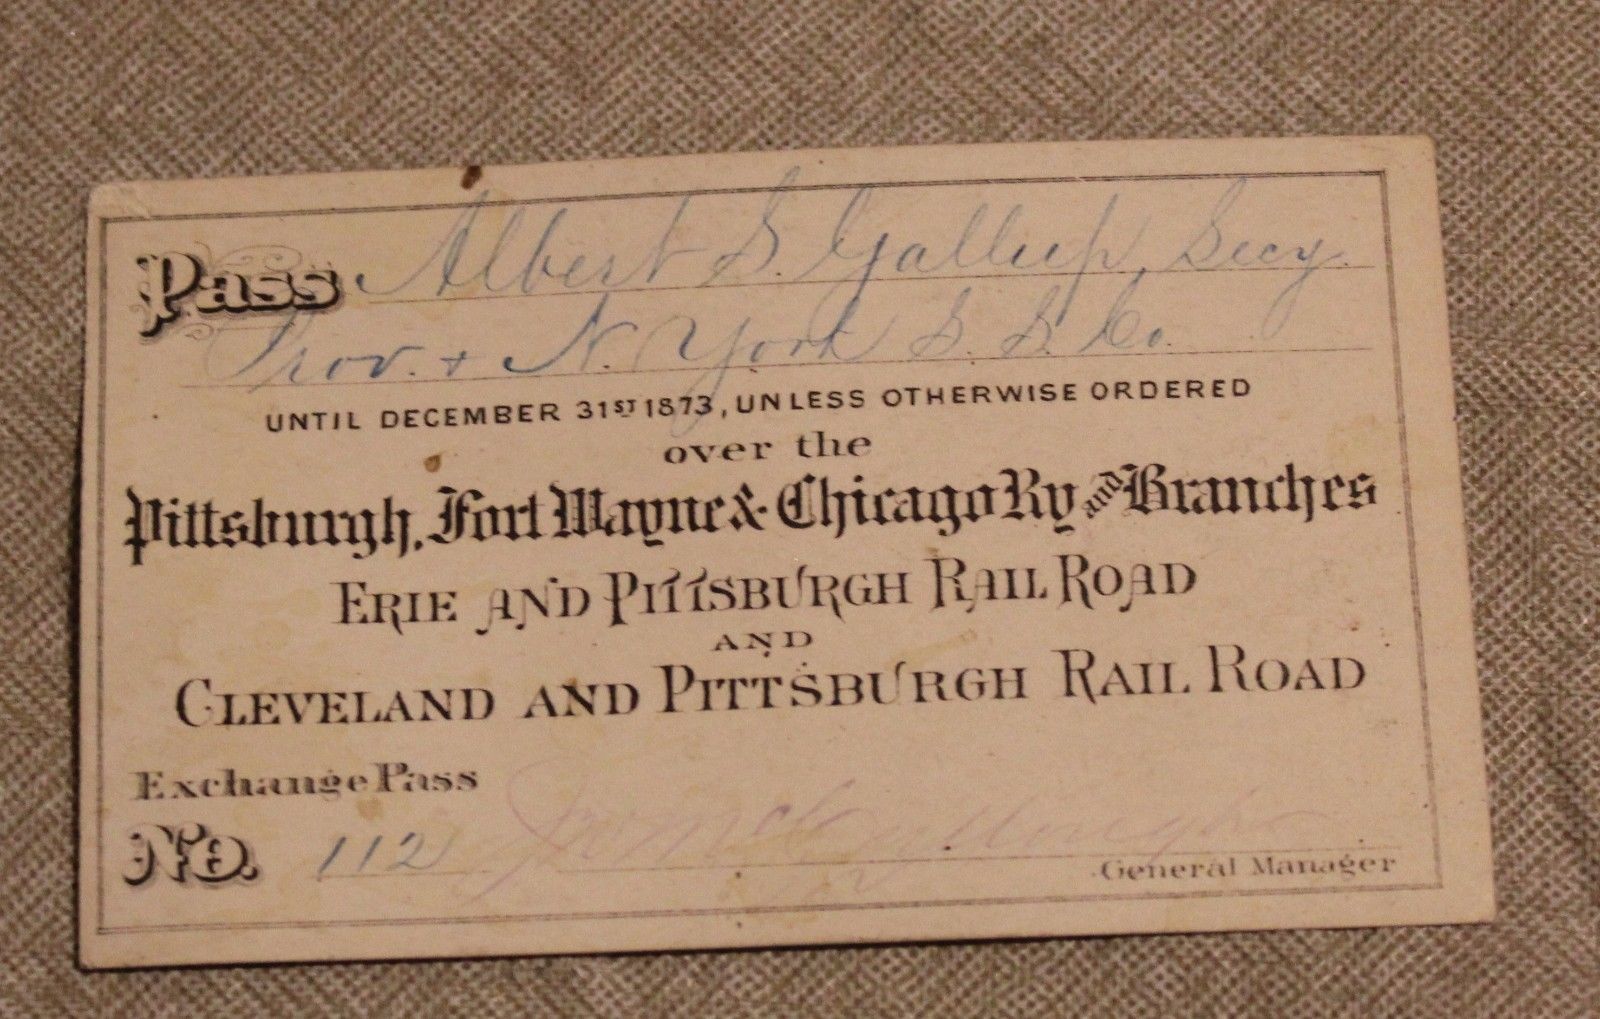 Pass Albert S. Gallup, Secy.
Prov. + N. York S. S. Co.
UNTIL DECEMBER 31ST 1873, UNLESS OTHERWISE ORDERED
over the
Pittsburgh, Fort Wayne & Chicago Ry AND Branches
ERIE AND PITTSBURGH RAIL ROAD
AND
CLEVELAND AND PITTSBURGH RAIL ROAD
Exchange Pass
No. 112
General Manager